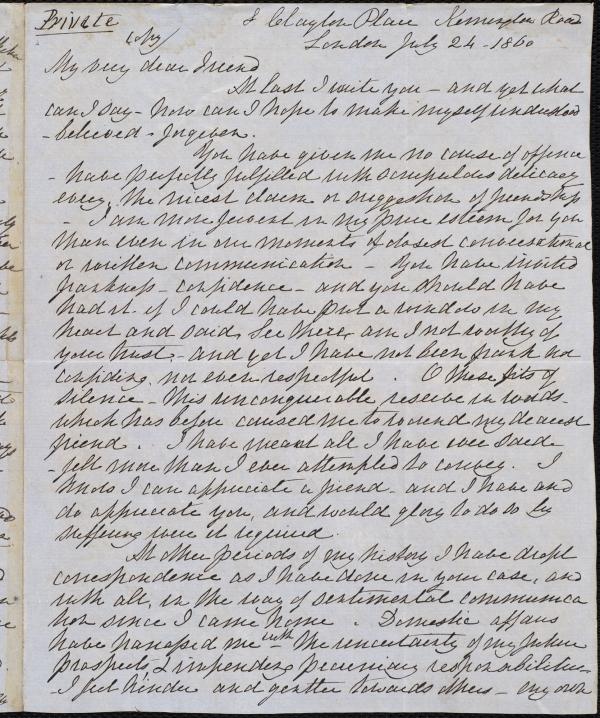 Private
8 Clayton Place Kennington Road
copy/
London July 24 - 1860
My very dear Friend
At last I write you - and yet what
can I say - how can I hope to make myself understood
- believed - forgiven.
You have given me no cause of offence
- have perfectly fulfilled with scrupulous delicacy
every, the nicest claim or suggestion of friendship
- I am more fervent in my pure esteem for you
than even in our moments of closest conversational
or written communication - You have invited
frankness - confidence - and you should have
had it. if I could have put a window in my
heart and said, See there, am I not worthy of
your trust - and yet I have not been frank nor
confiding, nor even respectful. O these fits of
silence - this unconquerable reserve in words -
which has before caused me to wound my dearest
friend. I have meant all I have ever said
- felt more than I ever attempted to convey. I
know I can appreciate a friend - and I have and
do appreciate you, and would glory to do so by
suffering were it required.
At other periods of my history I have dropt
correspondence as I have done in your case, and
with all, in the way of sentimental communica
tion since I came home. Domestic affairs
have harassed me with the uncertainty of my future
prospects, & impending pecuniary responsibilities -
- I feel kinder and gentler towards others - my own